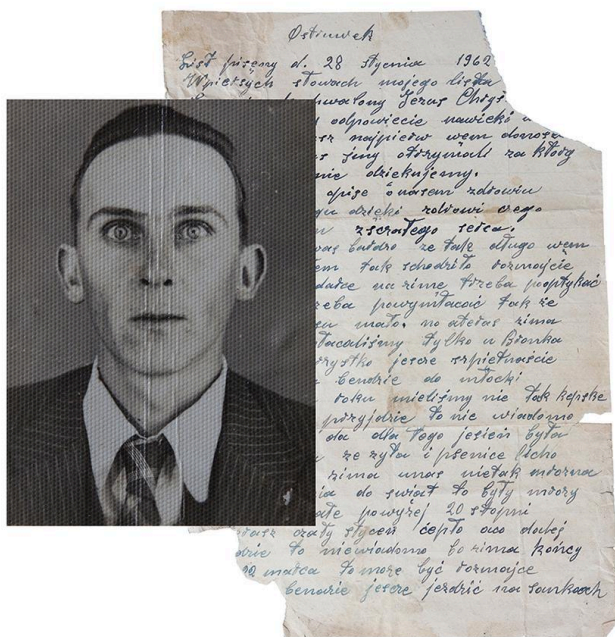 Ostruwek
List pisany d. 28 stycnia 1962
Wpierszych słowach mojego listu
hwalony Jezus Chrys
odpowiecie nawieki
sz najpierw wem donosze
s siny otrzymali za ktory
nie dziekujemy.
opise o nasem zdrowiu
gu dzięki zdrowi czego
m zszcałego serca.
was bardzo ze tak długo wem
em tak schodziło rozmajcie
datce na zime trzeba pooptykać
zeba powymłacać tak ze
sa mało. no a teras zima
łacaliśmy tylko u Bronka
zystko jesce szpietnaście
bendzie do młocki
roku mieliśmy nie tak kepske
przyjdzie to nie wiadomo
da dla tego jesień była
ze zyta i psenice licho
zima unas nietak mrozna
ia do swiat to były mrozy
ale powyzej 20 stopni
teras cały styceń ciepło a co dalej
dzie to niewiadomo bo zima kończy
12 marca to moze być rozmajce
bendzie jesce jezdzić na sankach